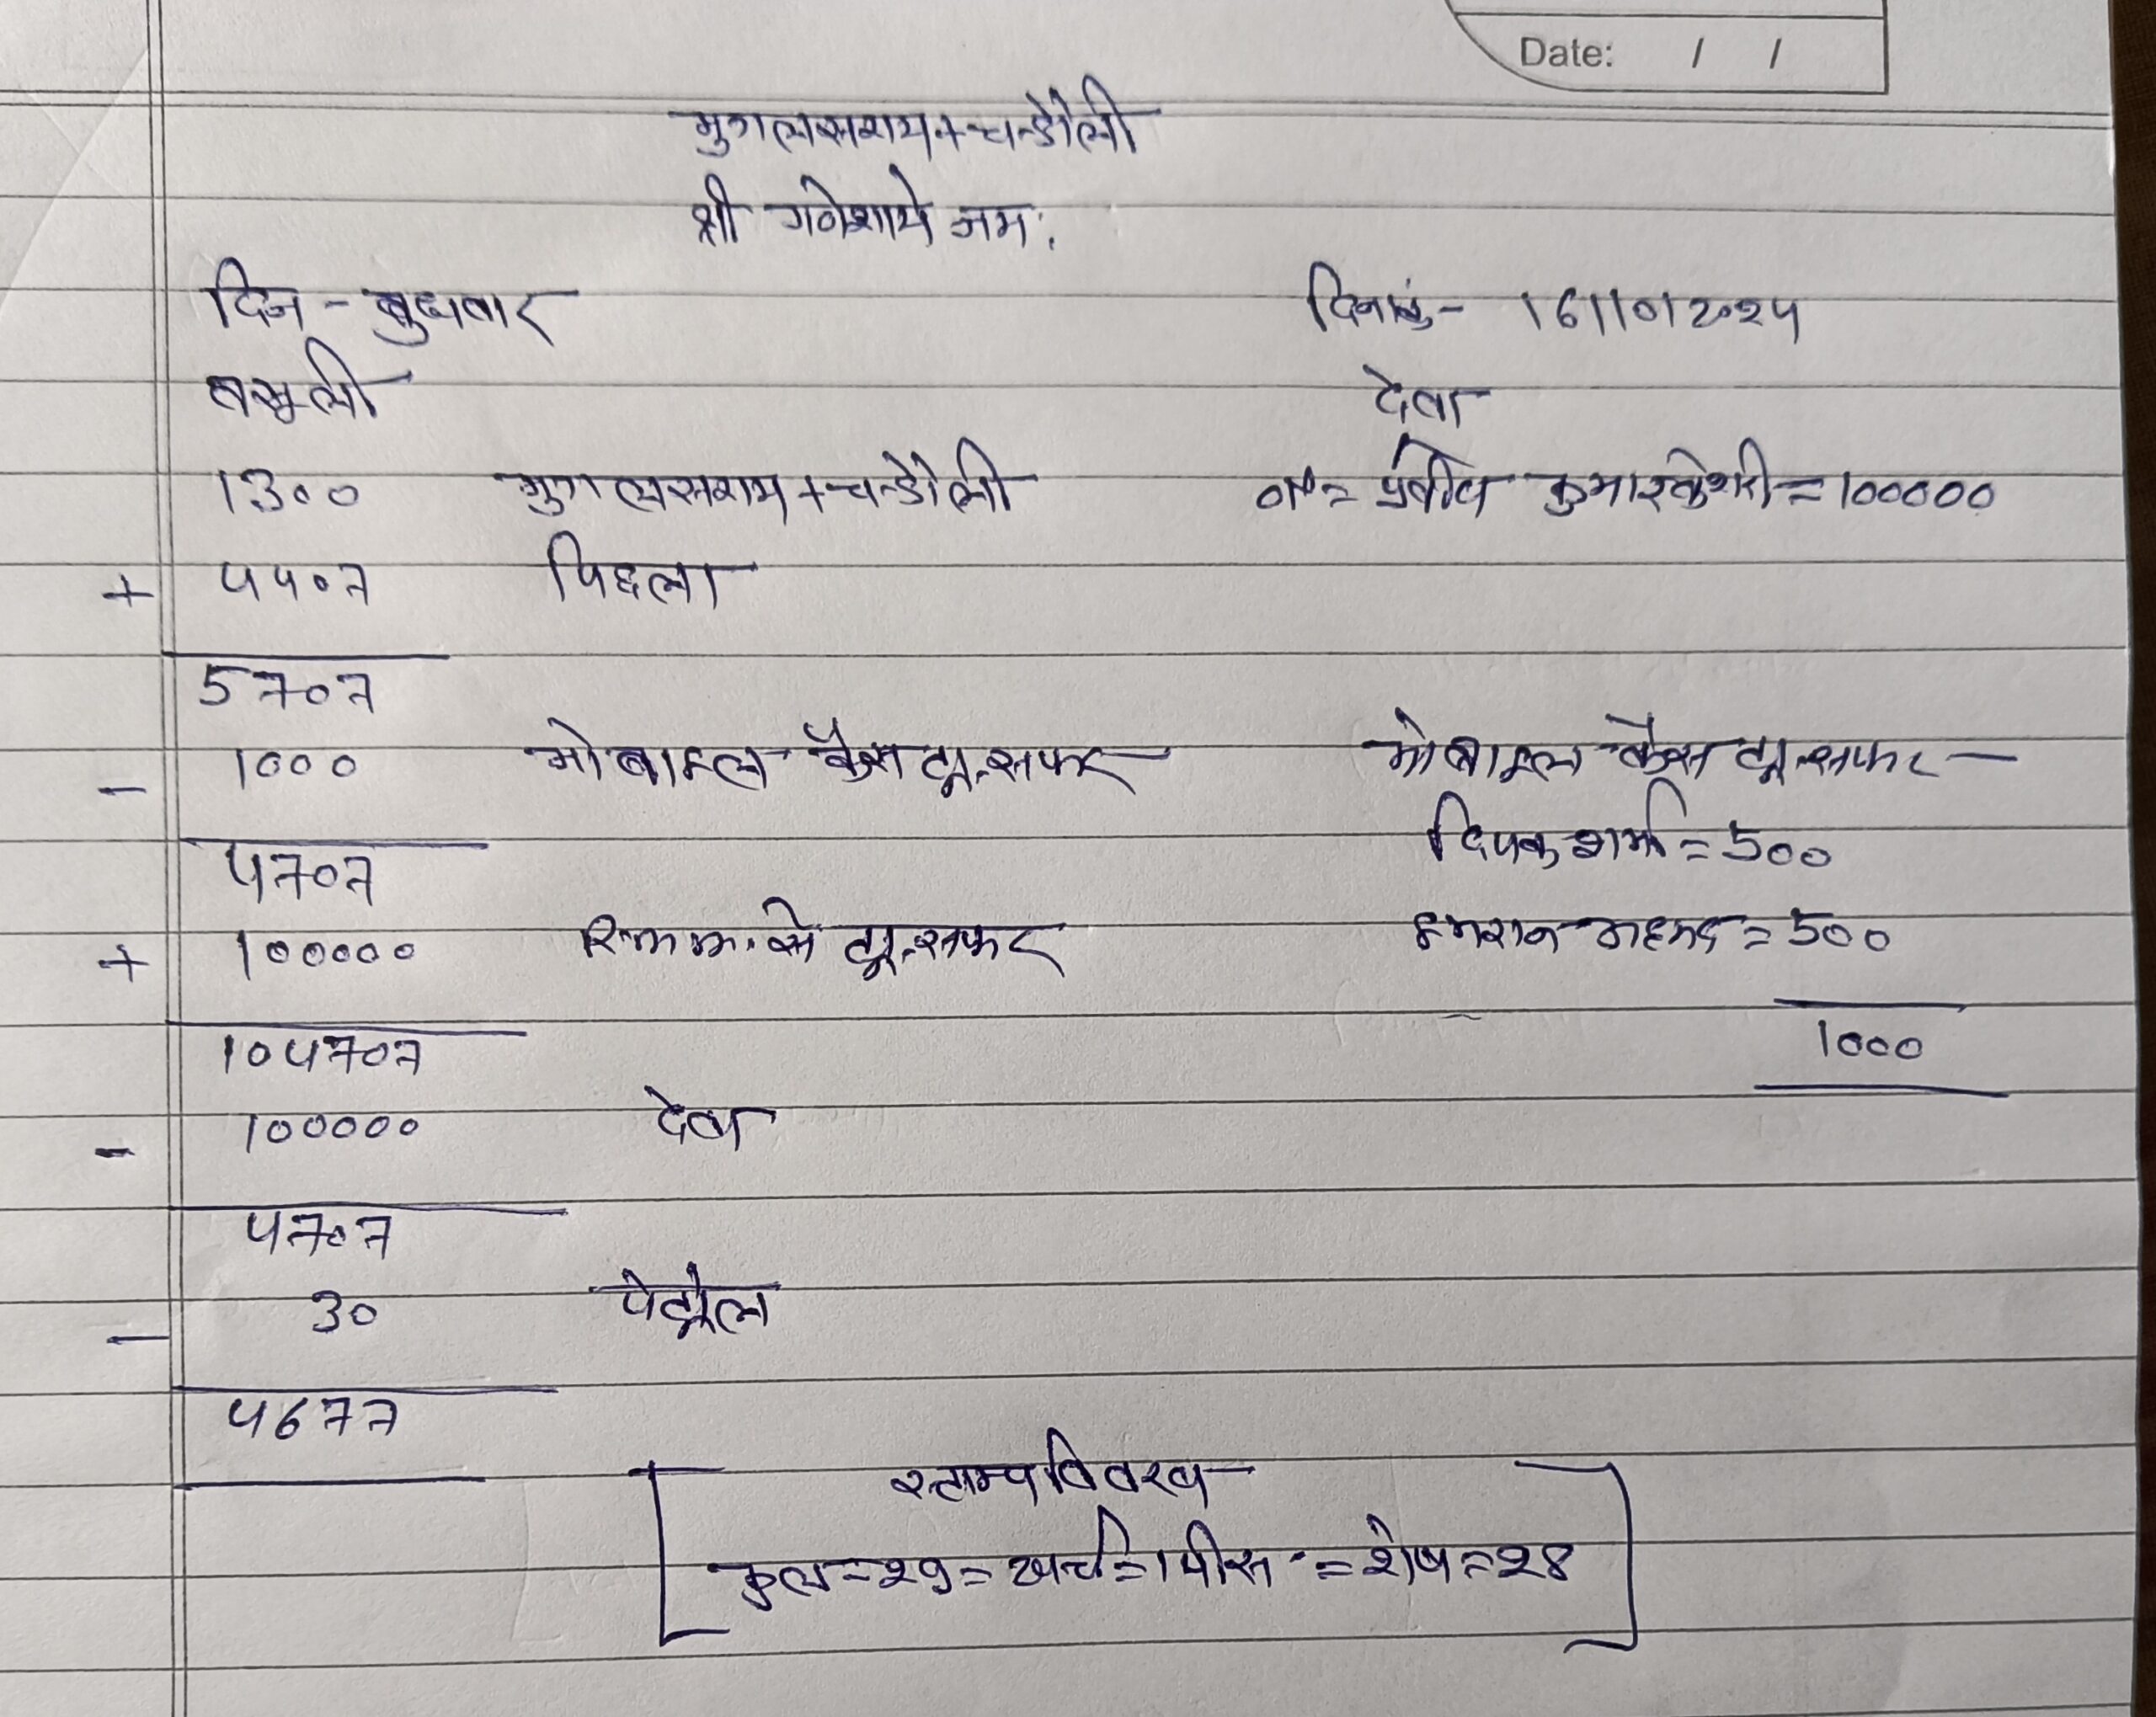 Date: / /
मुगलसराय + चन्दौली
श्री गणेशाये नमः
दिन - बुधवार दिनांक - 16/10/2024
वसूली देवा
1300 मुगलसराय + चन्दौली नाम = प्रवीण कुमार केशरी = 100000
+ 4407 पिछला
5707
- 1000 मोबाइल कैस ट्रान्सफर मोबाइल कैस ट्रान्सफर -
4707 दिपक शर्मा = 500
+ 100000 से ट्रान्सफर इमरान अहमद = 500
104707 1000
- 100000 देवा
4707
- 30 पेट्रोल
4677
स्टाम्प विवरण
कुल = 29 = खर्च = 1 पीस = शेष = 28